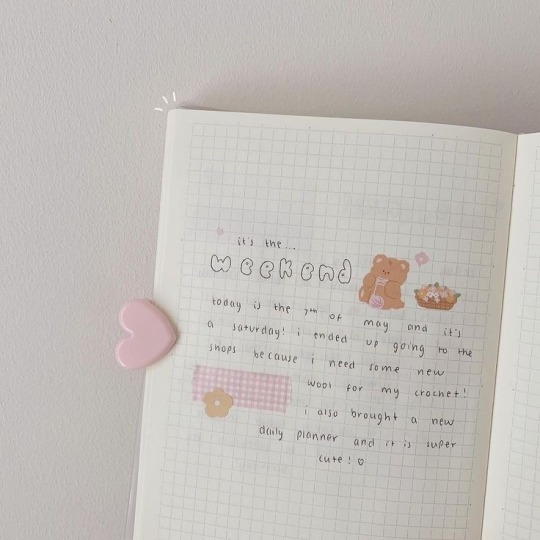 it's the...
weekend
today is the 7th of may and it's
a saturday! i ended up going to the
shops because i need some new
wool for my crochet!
i also brought a new
daily planner and it is super
cute! ♡